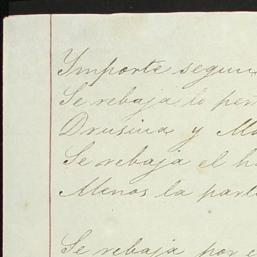 Importe segun
Se rebaja lo per
Drusina y Ma
Se rebaja el h
Menos la part
Se rebaja por e